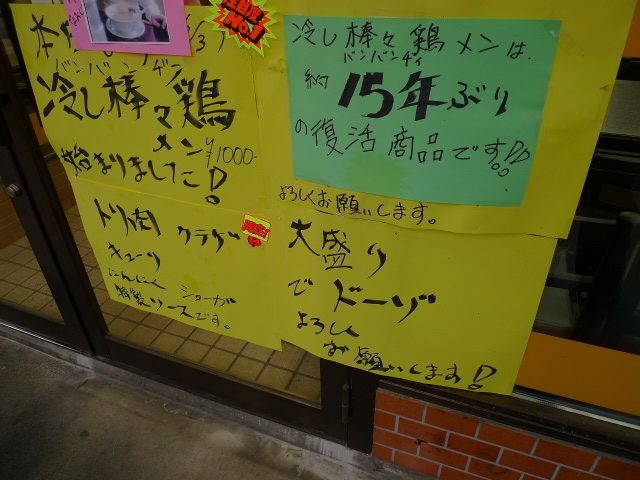 バンバンヂー
冷し棒々鶏
メン ¥1000-
始まりました!
注目度
No.1
冷し棒々鶏メンは、
バンバンヂィ
約15年ぶり
の復活商品です!!
よろしくお願いします。
トリ肉 クラゲ
キューリ
にんにく ショーガ
特製ソースです。
大盛り
でドーゾ
よろしく
お願いします!